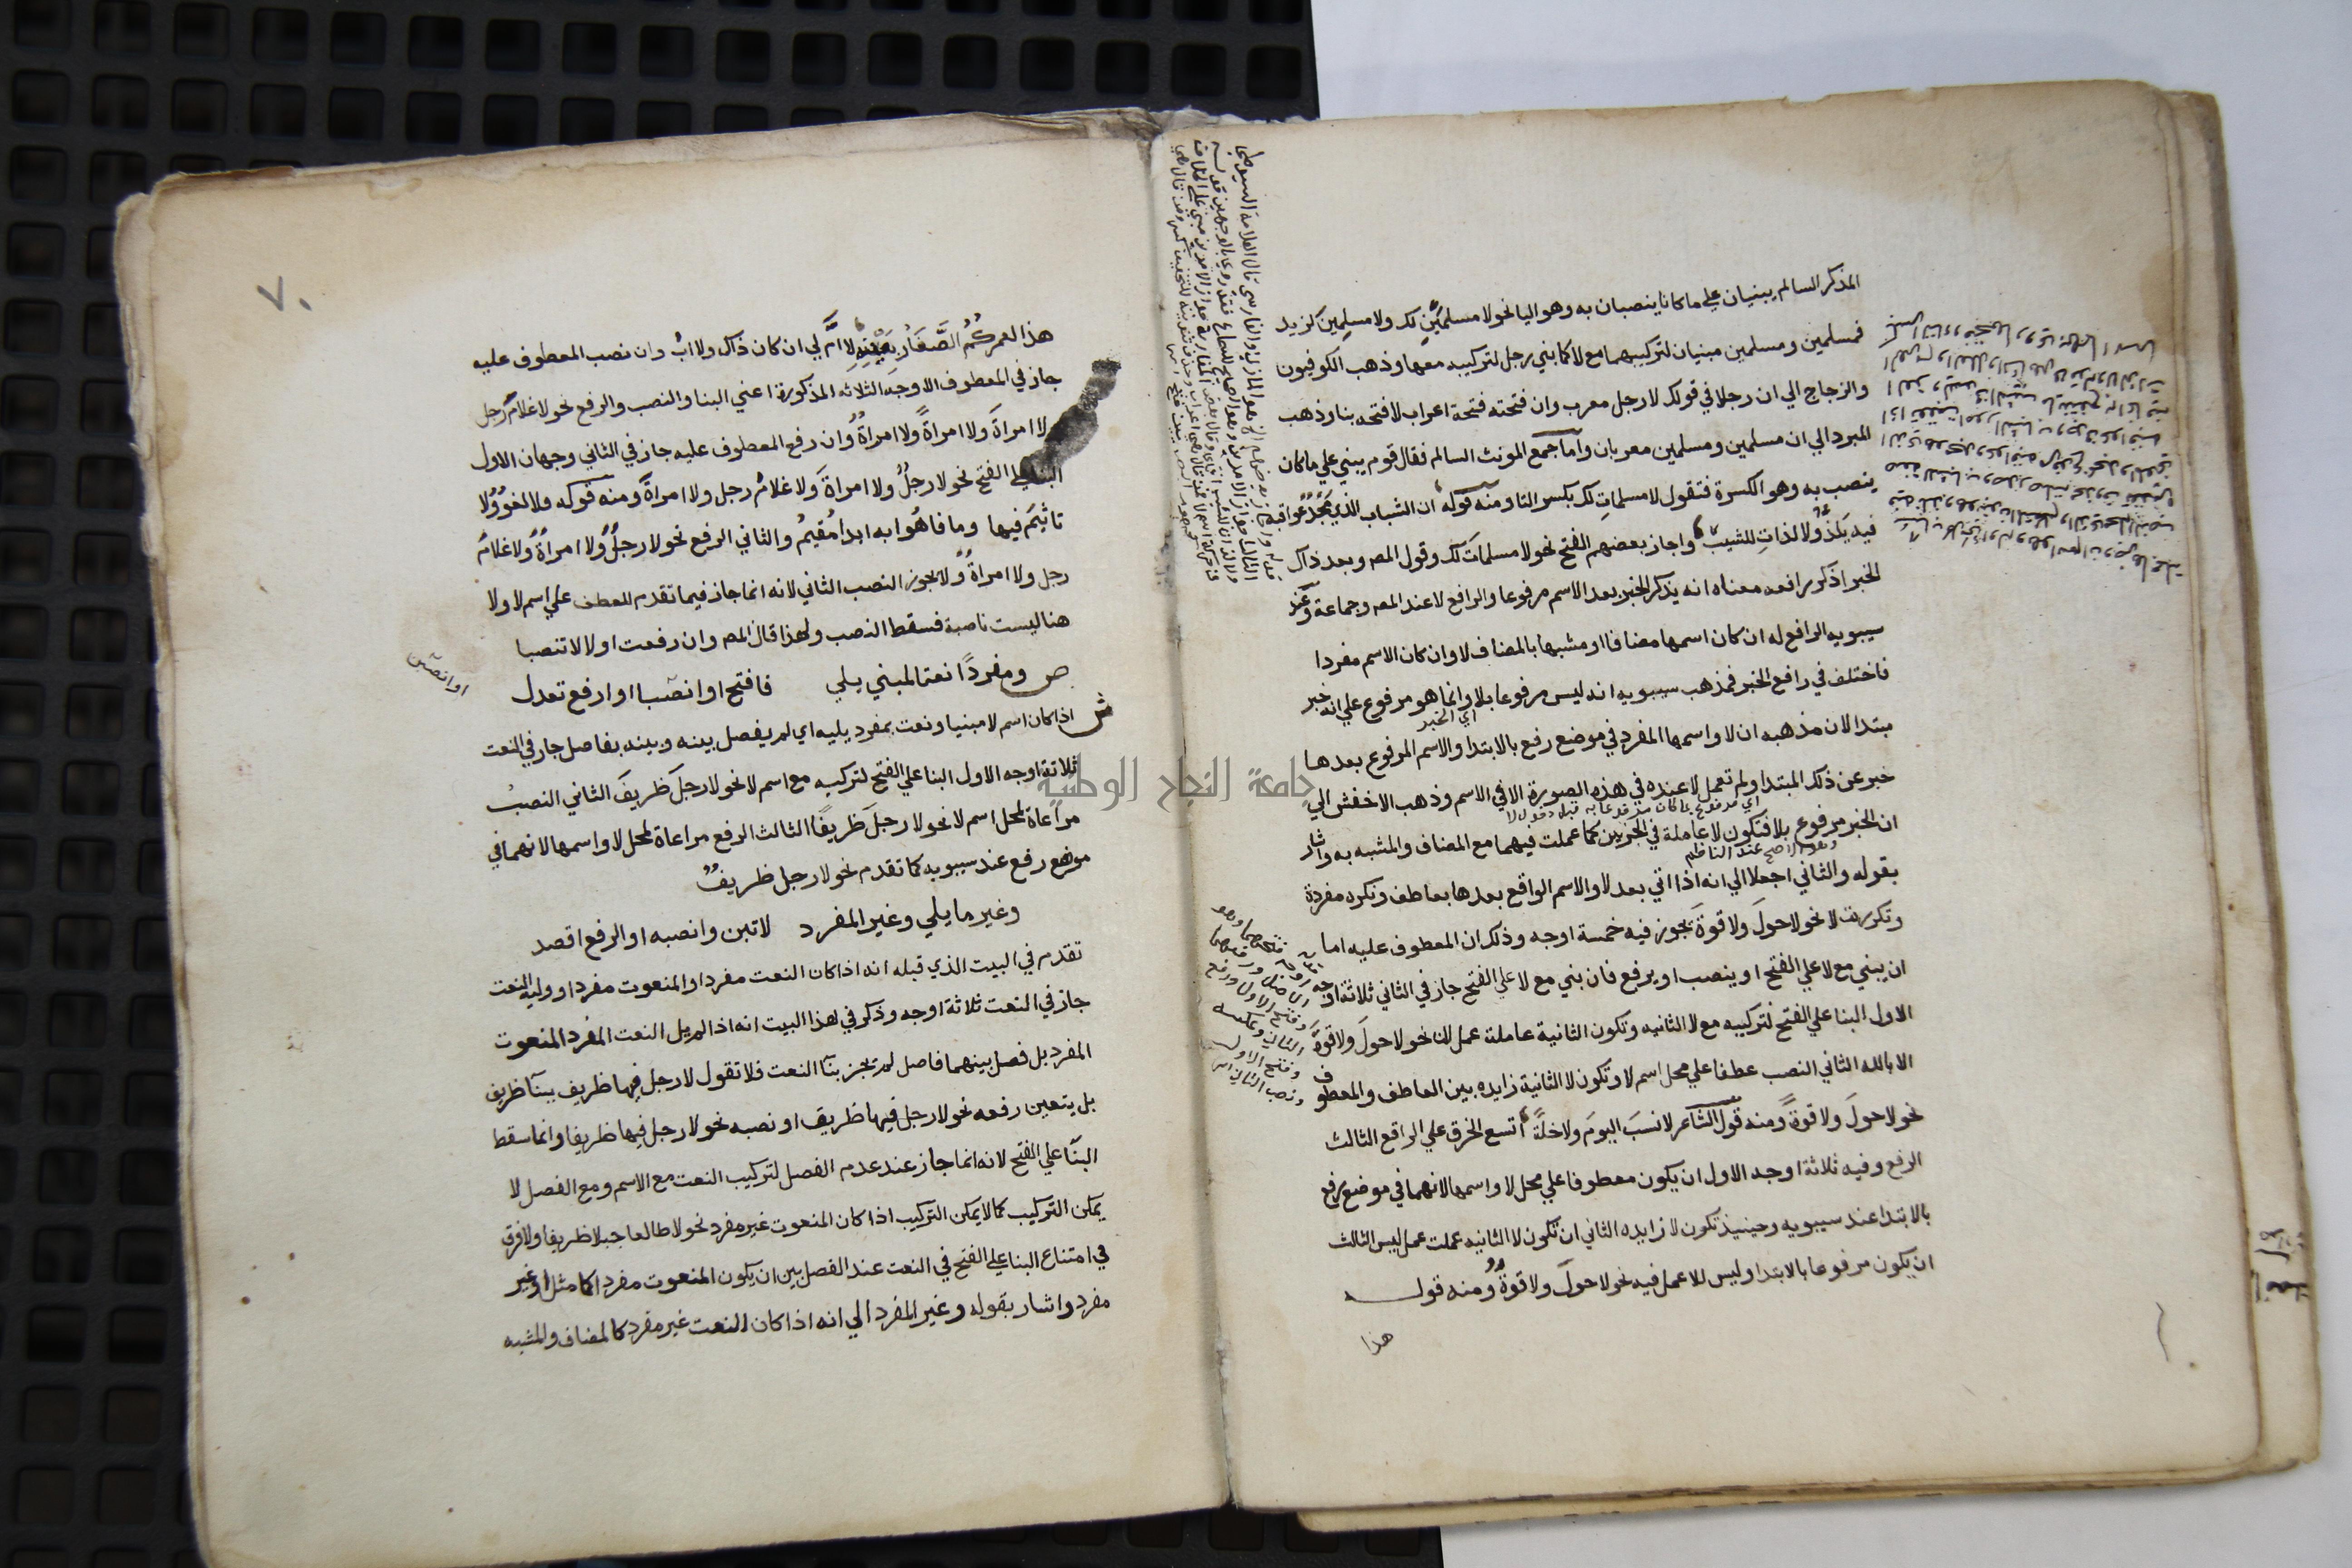 المذكر السالم يبنيان على ما كانا ينصبان به وهو اليا نحو لا مسلمَيْنِ لك ولا مسلمِين لزيد
فمسلمين ومسلمين مبنيان لتركيبهما مع لا كما بني رجل لتركيبه معها وذهب الكوفيون
والزجاج الي ان رجلا في قولك لا رجل معرب وان فتحته فتحة اعراب لا فتحه بنا وذهب
المبرد الي ان مسلمين ومسلمين معربان وأما جمع المونث السالم فقال قوم يبني علي ما كان
ينصب به وهو الكسرة فتقول لا مسلماتِ لك بكسر التا ومنه قوله ان الشباب الذي مَجْدٌ عواقبه
فيه يَلَذُّ ولا لذاتِ للشيب واجاز بعضهم الفتح نحو لا مسلماتَ لك وقول المص وبعد ذاك
الخبر اذكر رافعه معناه انه يذكر الخبر بعد الاسم مرفوعا والرافع لا عند المص وجماعة وعند
سيبويه الرافع له ان كان اسمها مضافا او مشبها بالمضاف لا وان كان الاسم مفردا
فاختلف في رافع الخبر فمذهب سيبويه انه ليس مرفوعا بلا وانما هو مرفوع علي انه خبر
اي الخبر
مبتدا لان مذهبه ان لا واسمها المفرد في موضع رفع بالابتدا والاسم المرفوع بعدها
خبر عن ذلك المبتدا ولم تعمل لا عنده في هذه الصورة الا في الاسم وذهب الاخفش الي
اي مرفوع بما كان مرفوعا به قبل دخول لا
ان الخبر مرفوع بلا فتكون لا عاملة في الجزين كما عملت فيهما مع المضاف والمشبه به واشار
وهو الاصح عند الناظم
بقوله والثاني اجعلا الي انه اذا اتي بعد لا والاسم الواقع بعدها بعاطف ونكره مفردة
وتكررت لا نحو لا حولَ ولا قوةَ يجوز فيه خمسة اوجه وذلك ان المعطوف عليه اما
ان يبني مع لا علي الفتح او ينصب او يرفع فان بني مع لا علي الفتح جاز في الثاني ثلاثة اوجه
الاول البنا علي الفتح لتركيبه مع لا الثانيه وتكون الثانية عاملة عمل ان نحو لا حولَ ولا قوةَ
الا بالله الثاني النصب عطفا علي محل اسم لا وتكون لا الثانية زايده بين العاطف والمعطوف
نحو لا حولَ ولا قوةً ومنه قول الشاعر لا نسبَ اليومَ ولا خلةً اتسع الخرق علي الراقع الثالث
الرفع وفيه ثلاثة اوجه الاول ان يكون معطوفا علي محل لا واسمها لانهما في موضع رفع
بالابتدا عند سيبويه وحينيذ تكون لا زايده الثاني ان تكون لا الثانيه عملت عمل ليس الثالث
ان يكون مرفوعا بالابتدا وليس للا عمل فيه نحو لا حولَ ولا قوةٌ ومنه قوله
هذا
٧٠
هذا لعمركُمُ الصَّغَارُ بعَيْنِهِ لا امَّ لي ان كان ذاك ولا ابُ وان نصب المعطوف عليه
جاز في المعطوف الاوجه الثلاثه المذكورة اعني البنا والنصب والرفع نحو لا غلامَ رجل
ولا امراةَ ولا امراةً ولا امراةٌ وان رفع المعطوف عليه جاز في الثاني وجهان الاول
البنا علي الفتح نحو لا رجلٌ ولا امراةَ ولا غلامُ رجل ولا امراةَ ومنه قوله ولا لغوٌ ولا
تاثيمَ فيها وما فاهُوا به ابدا مُقيمُ والثاني الرفع نحو لا رجلٌ ولا امراةٌ ولا غلامُ
رجل ولا امراةٌ ولا يجوز النصب الثاني لانه انما جاز فيما تقدم للعطف علي اسم لا ولا
هنا ليست ناصبة فسقط النصب ولهذا قال المص وان رفعت اولا لا تنصبا
ص ومفردًا نعتا لمبني يلي فافتح او انصبا او ارفع تعدل
او انصبن
ش اذا كان اسم لا مبنيا ونعت بمفرد يليه اي لم يفصل بينه وبينه بفاصل جاز في النعت
ثلاثة اوجه الاول البنا علي الفتح لتركيبه مع اسم لا نحو لا رجلَ ظريفَ الثاني النصب
مراعاة لمحل اسم لا نحو لا رجلَ ظريفًا الثالث الرفع مراعاة لمحل لا واسمها لانهما في
موضع رفع عند سيبويه كما تقدم نحو لا رجل ظريفٌ
وغير ما يلي وغير المفرد لا تبن وانصبه او الرفع اقصد
تقدم في البيت الذي قبله انه اذا كان النعت مفردا والمنعوت مفردا ووليه النعت
جاز في النعت ثلاثة اوجه وذكر في هذا البيت انه اذا لم يل النعت المفرد المنعوت
المفرد بل فصل بينهما فاصل لم يجز بنآ النعت فلا تقول لا رجل فيها ظريف ببنآ ظريف
بل يتعين رفعه نحو لا رجل فيها ظريف او نصبه نحو لا رجل فيها ظريفا وانما سقط
البنآ علي الفتح لانه انما جاز عند عدم الفصل لتركيب النعت مع الاسم ومع الفصل لا
يمكن التركيب كما لا يمكن التركيب اذا كان المنعوت غير مفرد نحو لا طالعا جبلا ظريفا ولا فرق
في امتناع البنا علي الفتح في النعت عند الفصل بين ان يكون المنعوت مفردا كما مثل او غير
مفرد واشار بقوله وغير المفرد الي انه اذا كان النعت غير مفرد كالمضاف والمشبه
جامعة النجاح الوطنية